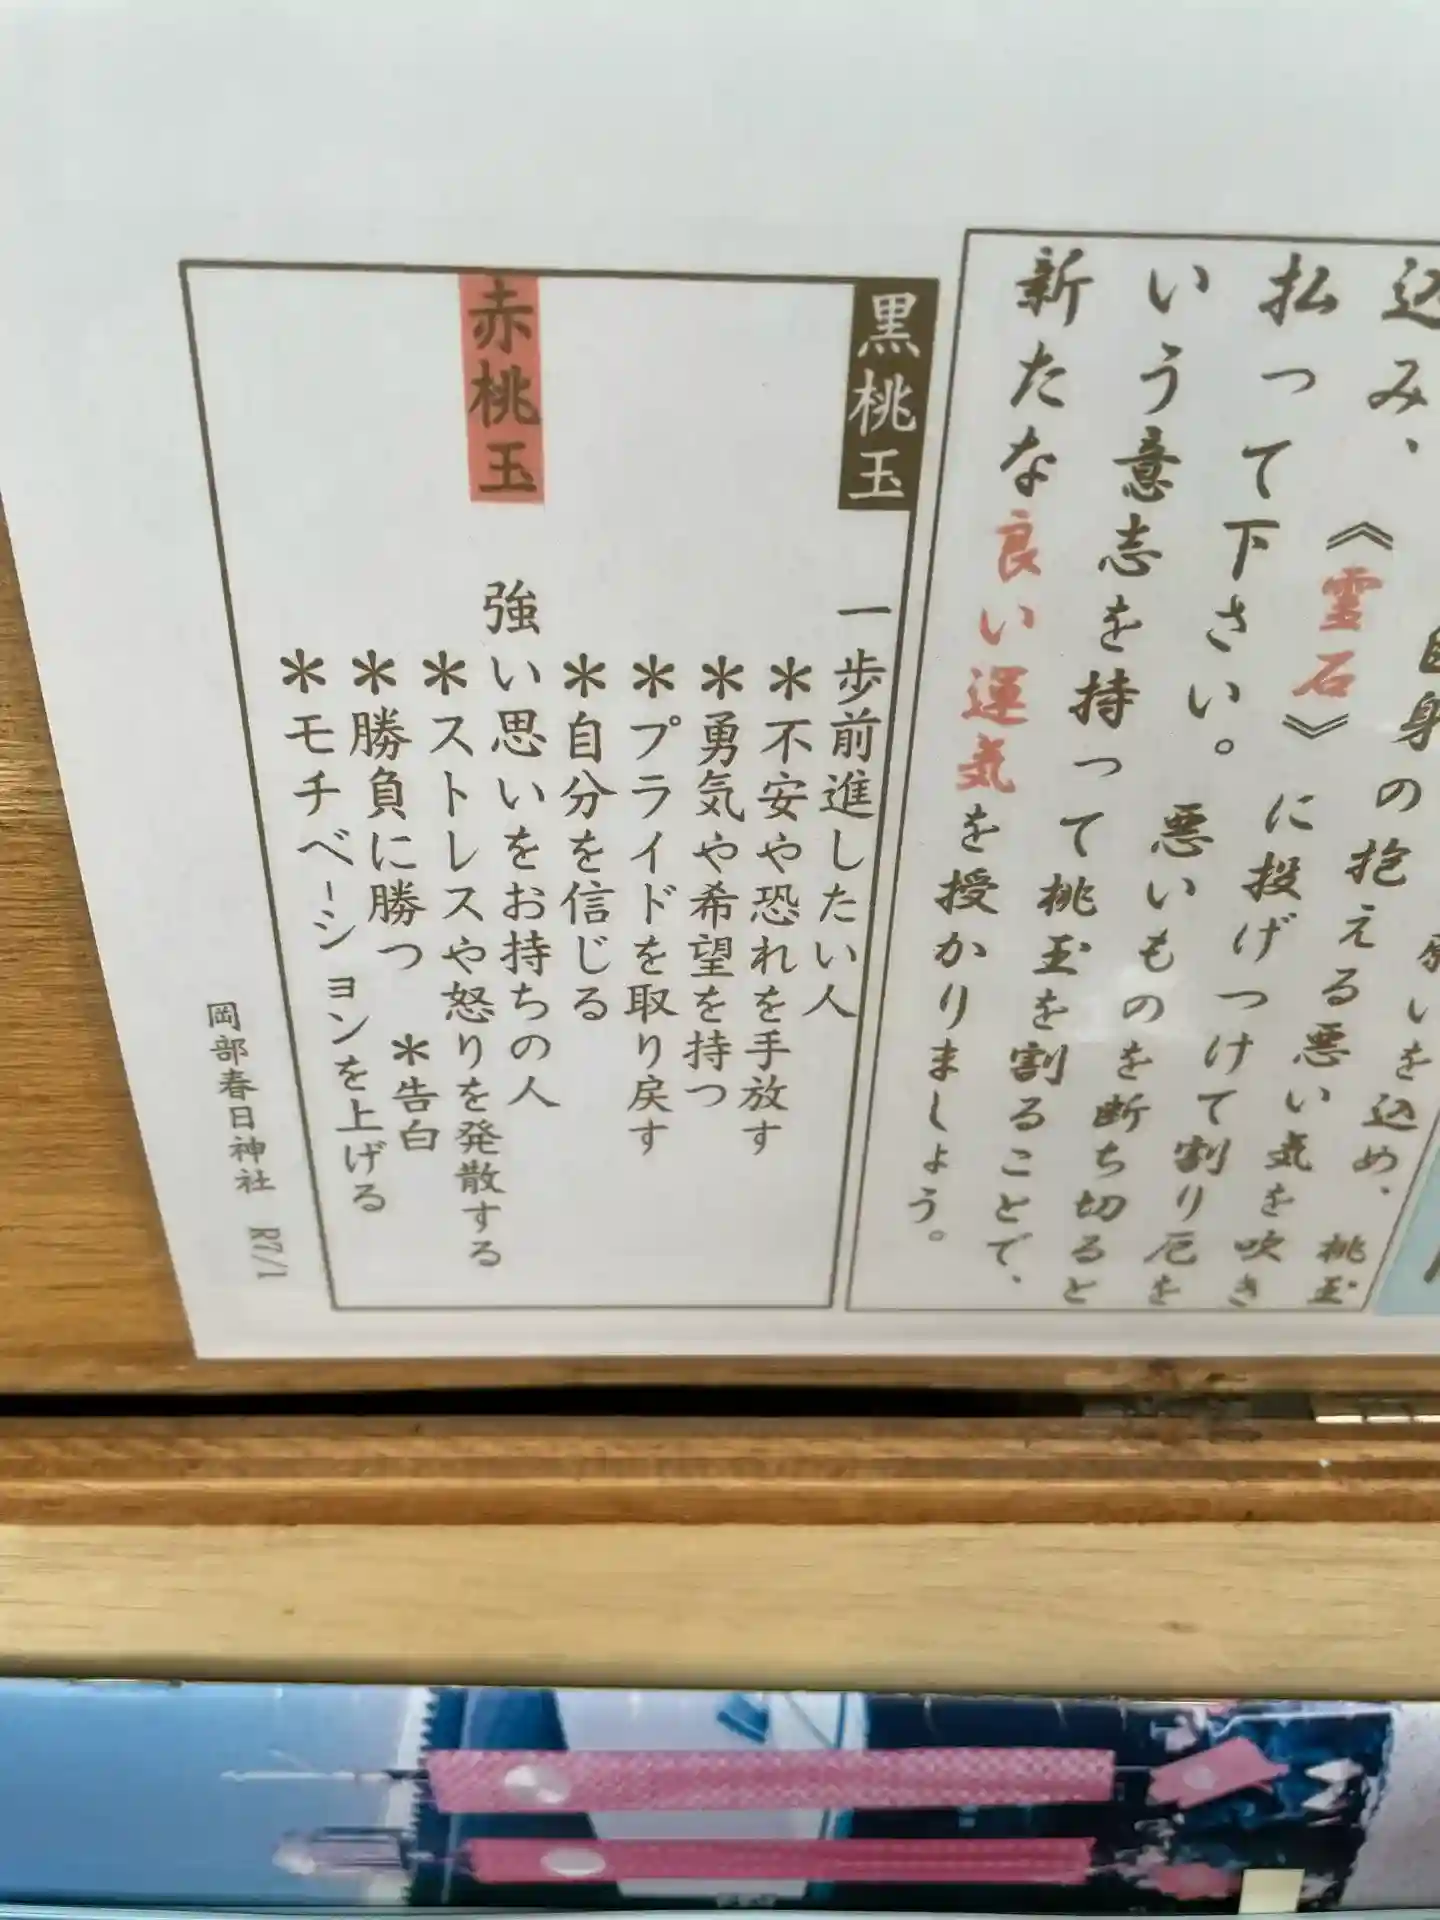 身の抱える悪い気を吹き
込み、《霊石》に投げつけて割り厄を
払って下さい。悪いものを断ち切ると
いう意志を持って桃玉を割ることで、
新たな良い運気を授かりましょう。
黒桃玉 一歩前進したい人
＊不安や恐れを手放す
＊勇気や希望を持つ
＊プライドを取り戻す
＊自分を信じる
赤桃玉 強い思いをお持ちの人
＊ストレスや怒りを発散する
＊勝負に勝つ ＊告白
＊モチベーションを上げる
岡部春日神社 R7/1